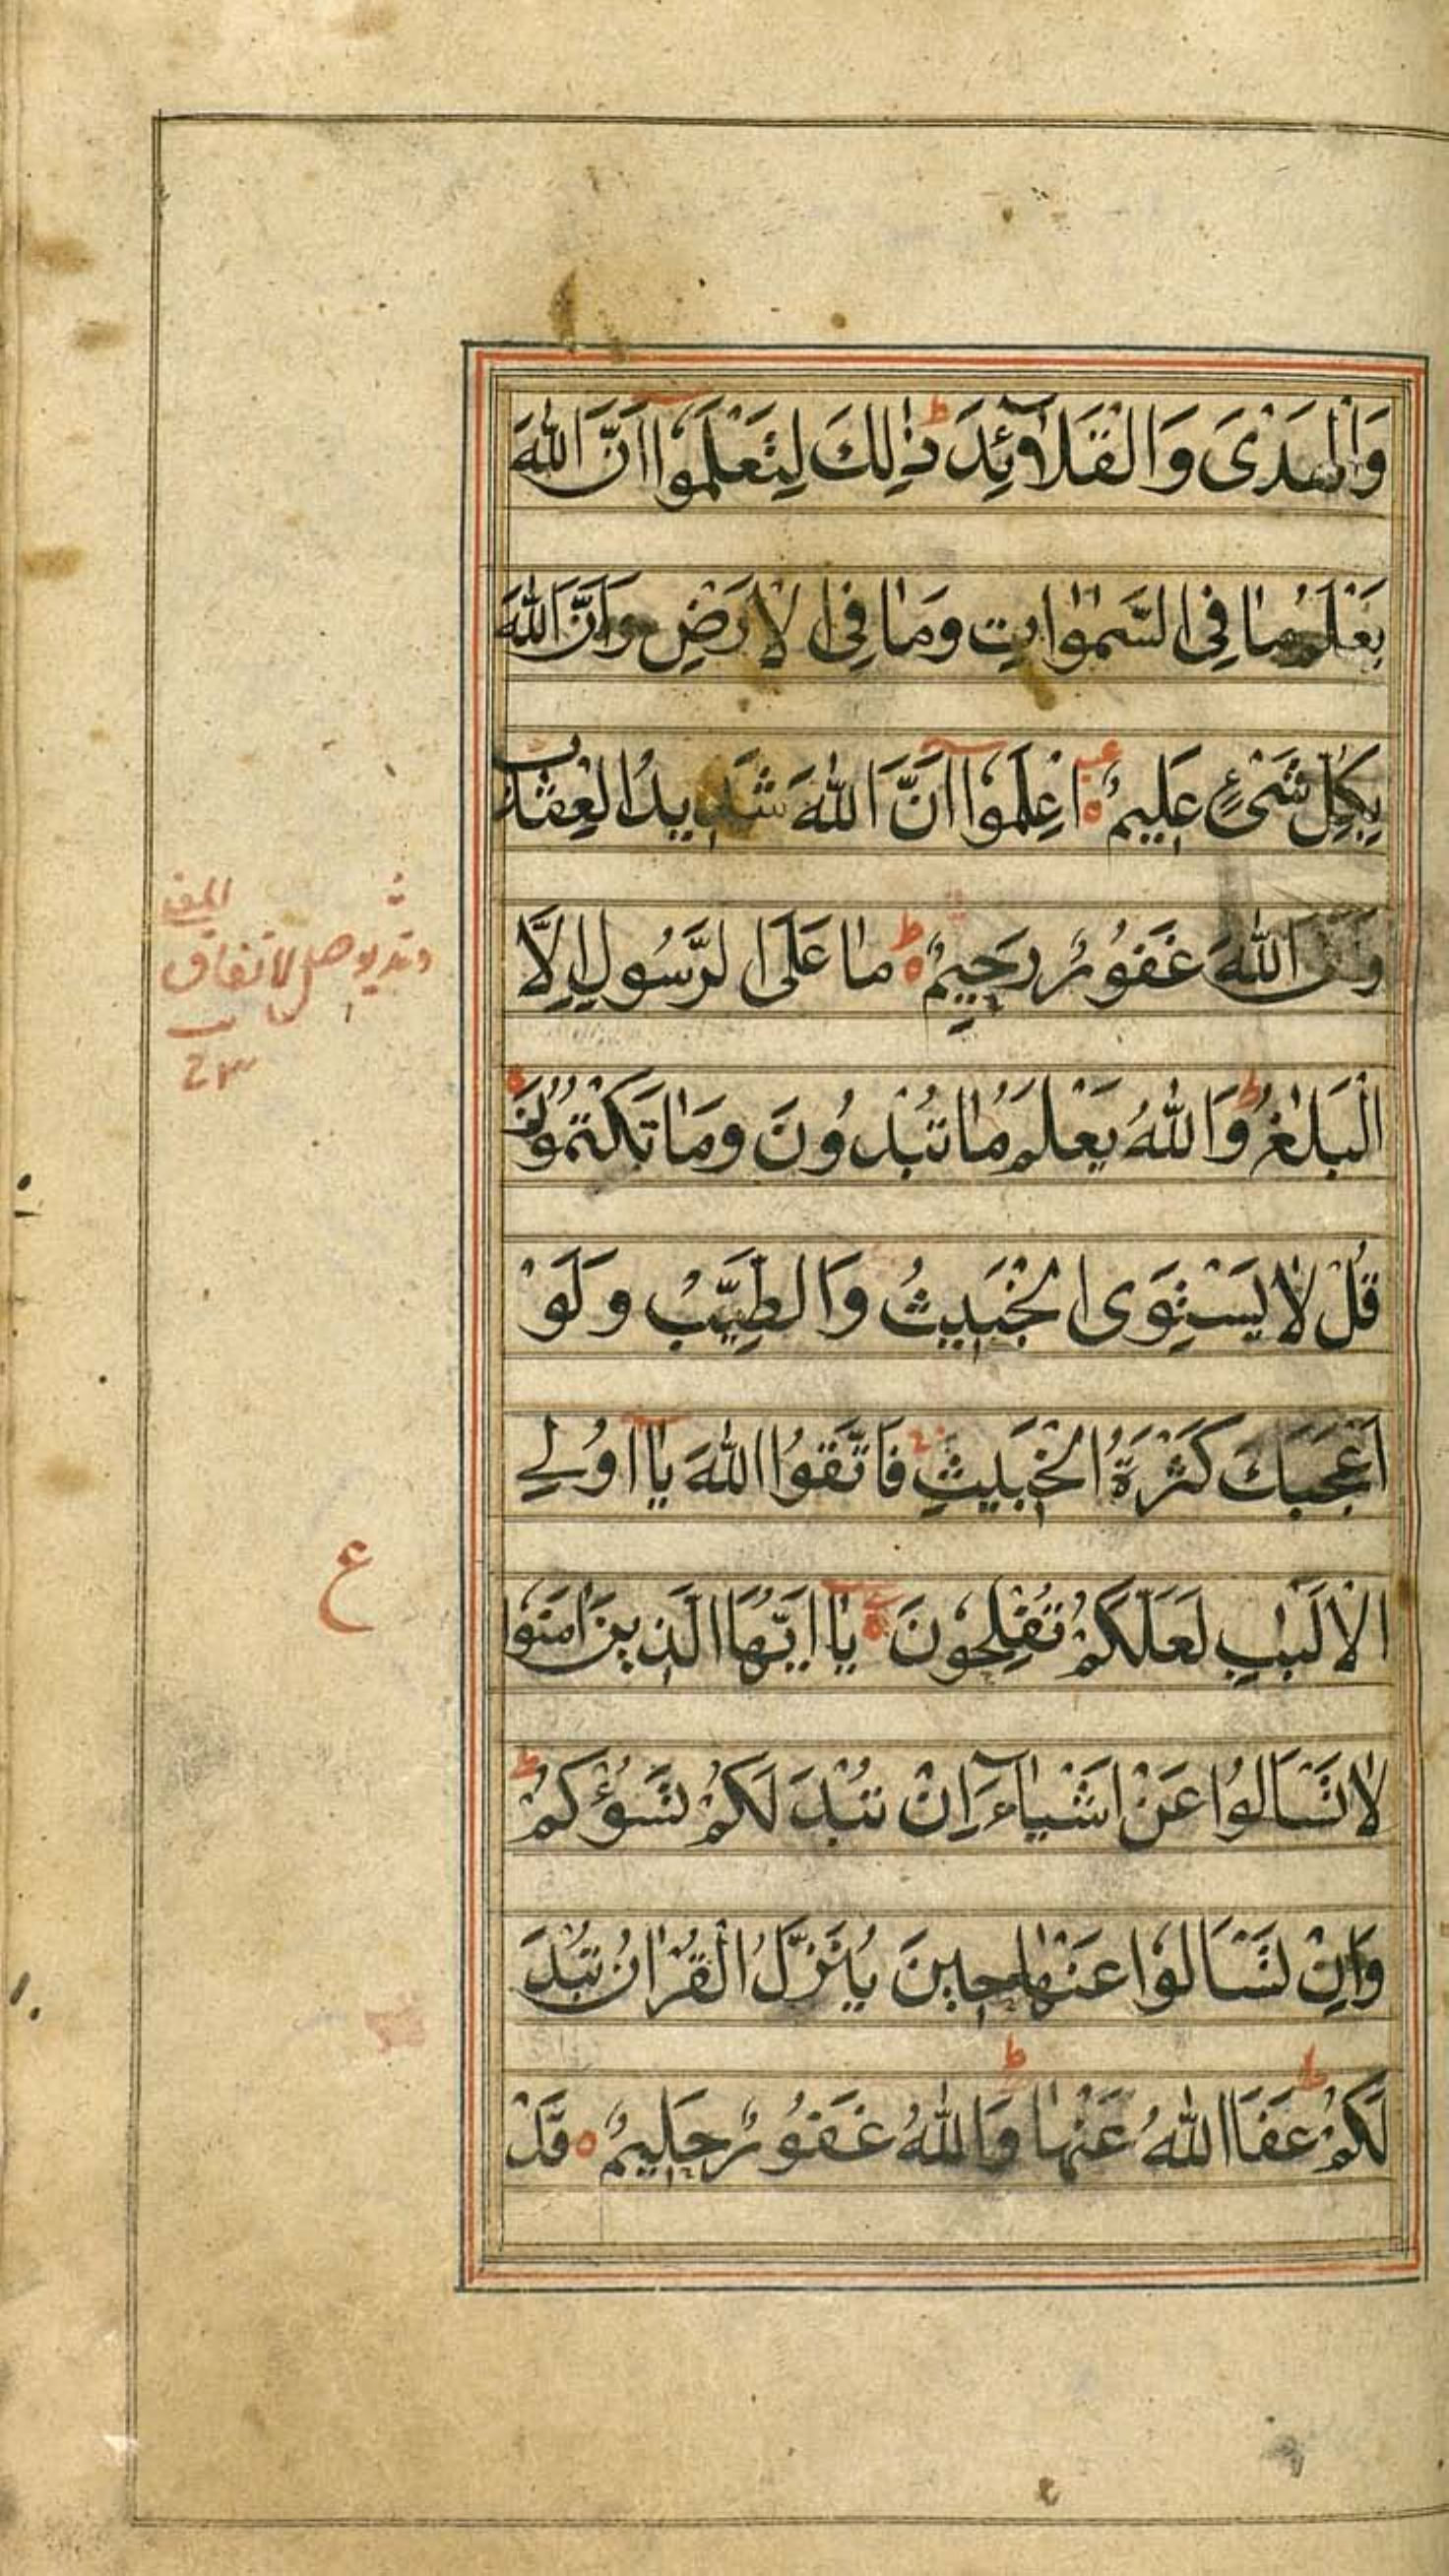 وَالْهَدْىَ وَالْقَلَآئِدَ ط ذٰلِكَ لِتَعْلَمُوْۤا اَنَّ اللّٰهَ
يَعْلَمُ مَا فِى السَّمٰوٰاتِ وَمَا فِى الْاَرْضِ وَاَنَّ اللّٰهَ
بِكُلِّ شَىْءٍ عَلِيْمٌ ه اِعْلَمُوْۤا اَنَّ اللّٰهَ شَدِيْدُ الْعِقَابِ
وَاَنَّ اللّٰهَ غَفُوْرٌ رَّحِيْمٌ ه ط مَا عَلَى الرَّسُوْلِ اِلَّا
الْبَلٰغُ ط وَاللّٰهُ يَعْلَمُ مَا تُبْدُوْنَ وَمَا تَكْتُمُوْنَ ه
قُلْ لَا يَسْتَوِى الْخَبِيْثُ وَالطَّيِّبُ وَلَوْ
اَعْجَبَكَ كَثْرَةُ الْخَبِيْثِ فَاتَّقُوا اللّٰهَ يَاۤ اُولِے
الْاَلْبٰبِ لَعَلَّكُمْ تُفْلِحُوْنَ ه يَاۤ اَيُّهَا الَّذِيْنَ اٰمَنُوْا
ع
لَا تَسْاَلُوْا عَنْ اَشْيَآءَ اِنْ تُبْدَ لَكُمْ تَسُؤْكُمْ ط
وَاِنْ تَسْاَلُوْا عَنْهَا حِيْنَ يُنَزَّلُ الْقُرْاٰنُ تُبْدَ
لَكُمْ ط عَفَا اللّٰهُ عَنْهَا ط وَاللّٰهُ غَفُوْرٌ حَلِيْمٌ ه قَدْ